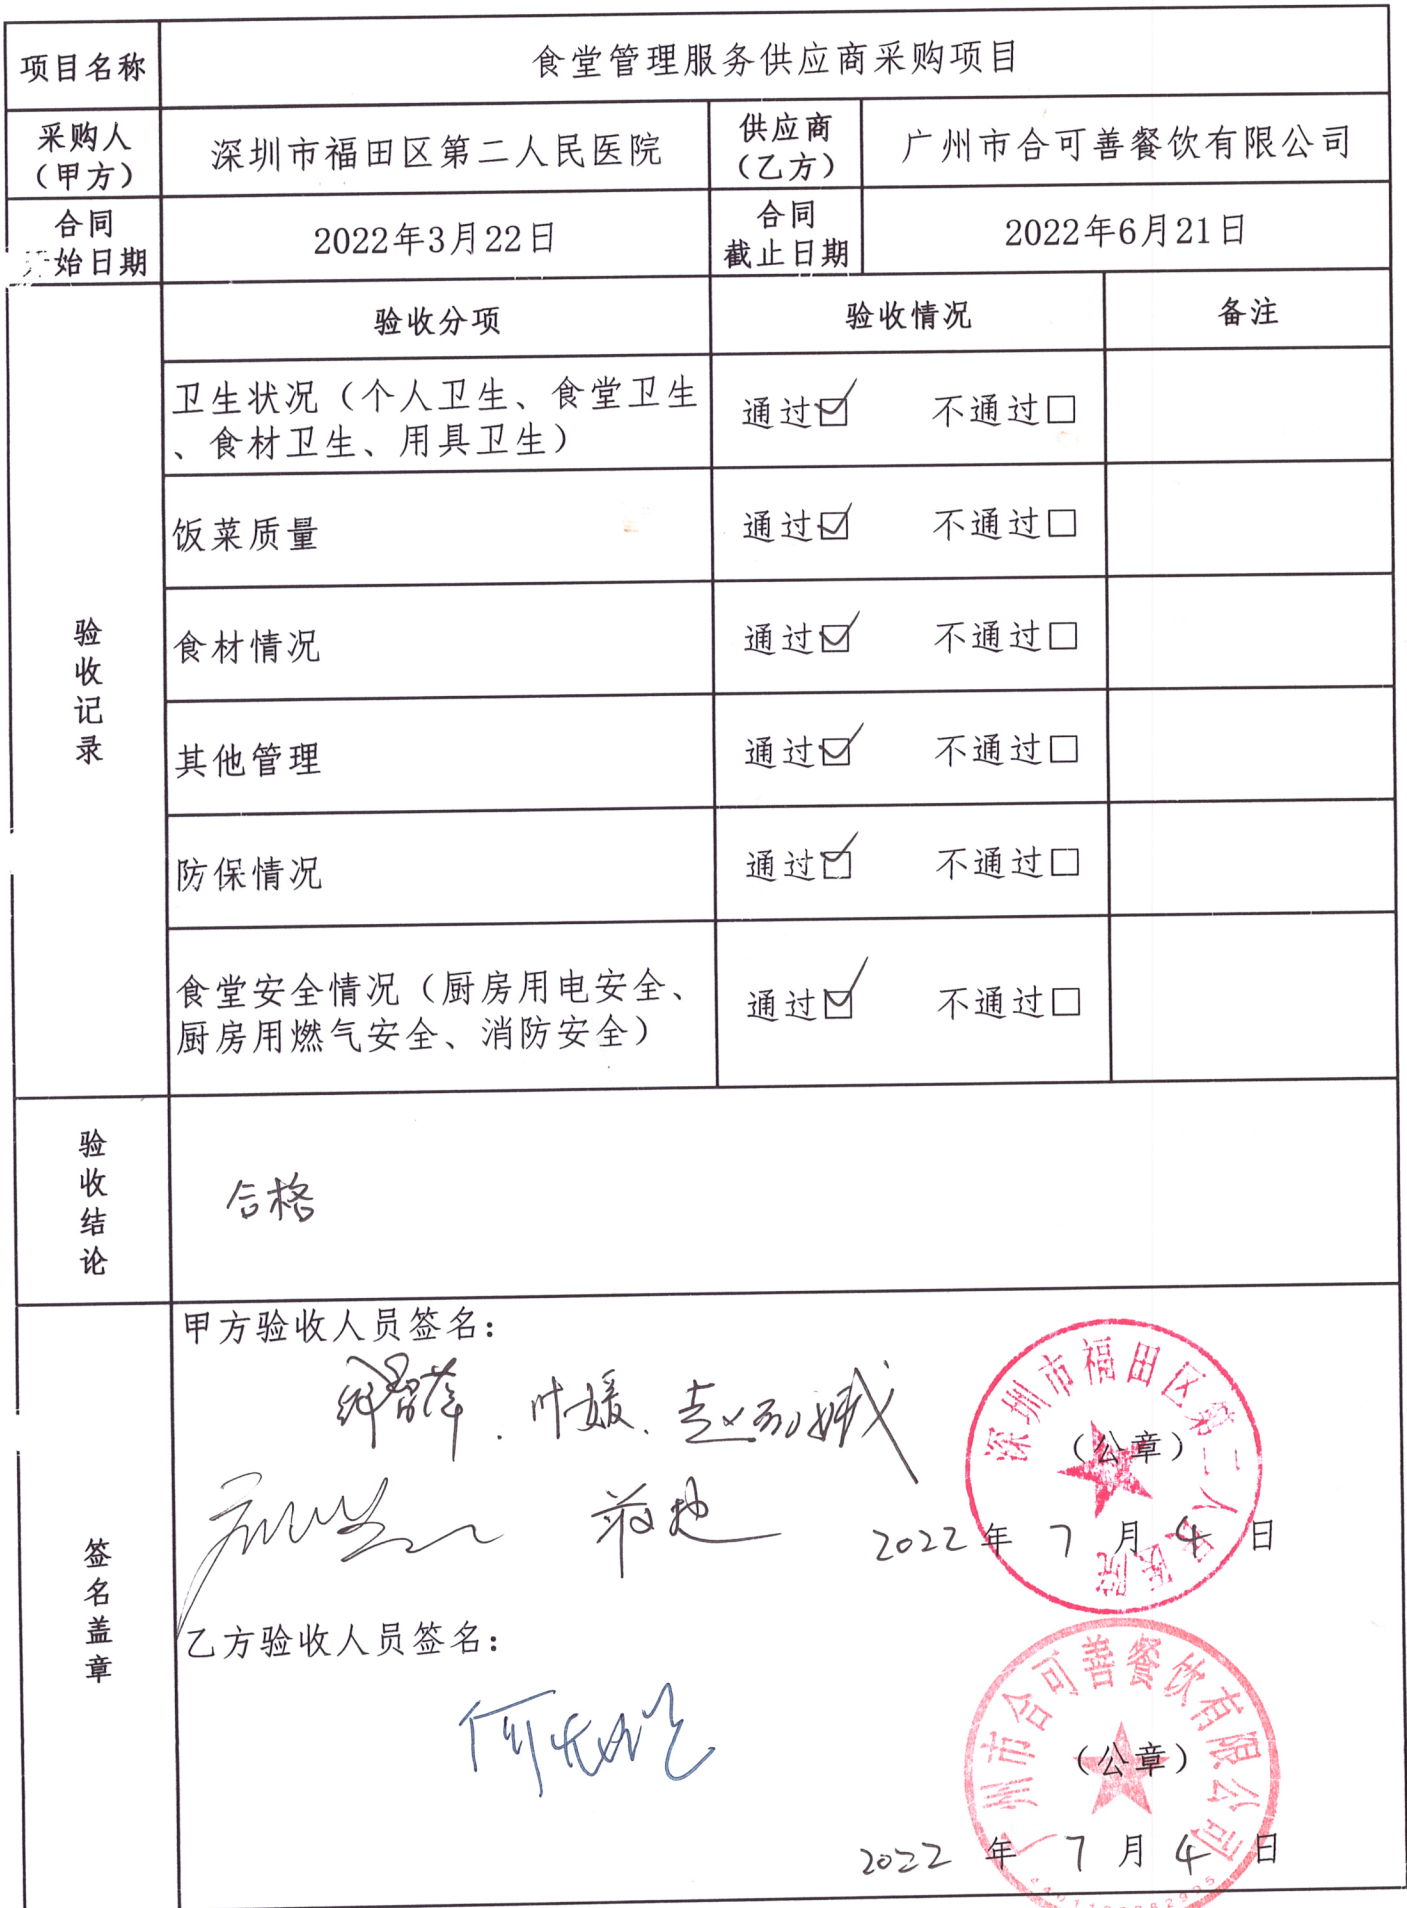 项目名称 食堂管理服务供应商采购项目
采购人
（甲方）
深圳市福田区第二人民医院
供应商
（乙方）
广州市合可善餐饮有限公司
合同
始日期
2022年3月22日
合同
截止日期
2022年6月21日
验收记录
验收分项 验收情况 备注
卫生状况（个人卫生、食堂卫生
、食材卫生、用具卫生）
通过☑ 不通过□
饭菜质量 通过☑ 不通过□
食材情况 通过☑ 不通过□
其他管理 通过☑ 不通过□
防保情况 通过☑ 不通过□
食堂安全情况（厨房用电安全、
厨房用燃气安全、消防安全）
通过☑ 不通过□
验收结论
合格
签名盖章
甲方验收人员签名：
叶媛
深圳市福田区第二人民医院
（公章）
2022年 7 月 4 日
乙方验收人员签名：
广州市合可善餐饮有限公司
（公章）
2022 年 7 月 4 日